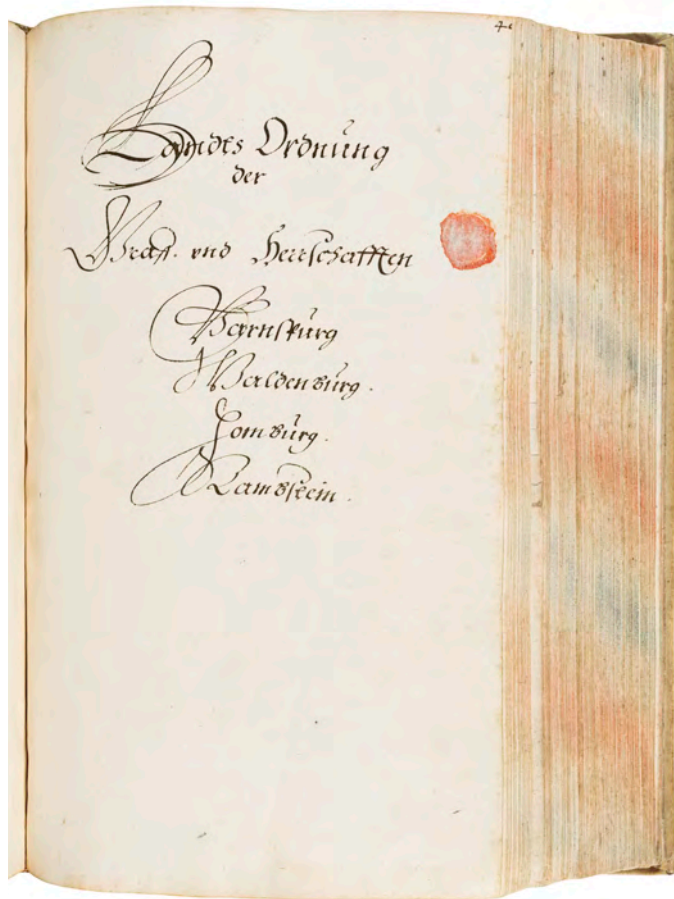 Landts Ordnung
der
Graff. vnd Herrschafften
Varnspurg
Waldenburg.
Homburg.
Rambstein.